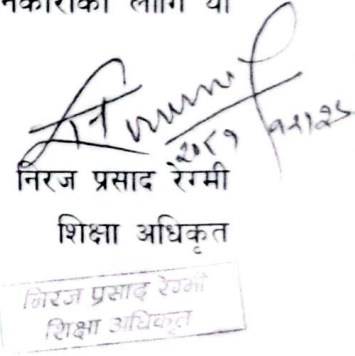 लागि यो
२०८१
निरज प्रसाद रेग्मी
शिक्षा अधिकृत
निरज प्रसाद रेग्मी
शिक्षा अधिकृत